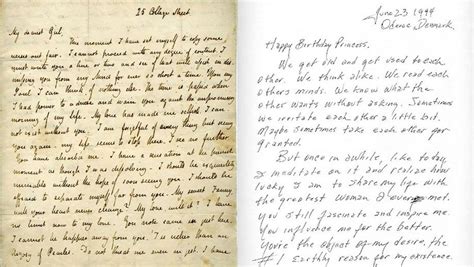 25 College Street
My dearest Girl,
This moment I have set myself to copy some
verses out fair. I cannot proceed with any degree of content. I
must write you a line or two and see if that will assist in dis-
missing you from my Mind for ever so short a time. Upon my
Soul I can think of nothing else. The time is passed when
I had power to advise and warn you against the unpromising
morning of my life. My love has made me selfish. I can
not exist without you. I am forgetful of every thing but seeing
you again. my life seems to stop there. I see no further.
You have absorb'd me. I have a sensation at the present
moment as though I was dissolving. I should be exquisitely
miserable without the hope of soon seeing you. I should be
afraid to separate myself far from you. My sweet Fanny
will your heart never change? My love, will it? I have
no limit now to my love. You note came in just here.
I cannot be happier away from you. 'T is richer than an
Argosy of Pearles. Do not threat me even in jest. I have
June 23 1994
Odense, Denmark.
Happy Birthday Princess.
We get old and get used to each
other. We think alike. We read each
others minds. We know what the
other wants without asking. Sometimes
we irritate each other a little bit.
Maybe sometimes take each other for
granted.
But once in awhile, like today,
I meditate on it and realize how
lucky I am to share my life with
the greatest woman I ever met.
You still fascinate and inspire me.
You influence me for the better.
You're the object of my desire, the
#1 Earthly reason for my existence.